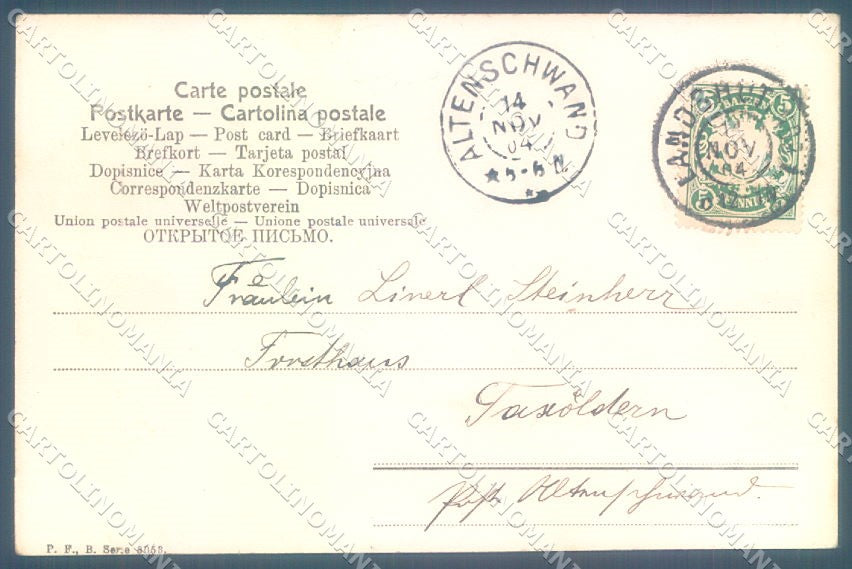 Carte postale
Postkarte — Cartolina postale
Levelezö-Lap — Post card — Briefkaart
Brefkort — Tarjeta postal
Dopisnice — Karta Korespondencyjna
Correspondenzkarte — Dopisnica
Weltpostverein
Union postale universelle — Unione postale universale
ОТКРЫТОЕ ПИСЬМО.
ALTENSCHWAND
14
NOV
04
5-6 N
LANDSHUT
NOV
04
5
5
Fräulein Linerl Steinherr
Forsthaus
Taxöldern
Post Altenschwand.
P. F., B. Serie
CARTOLINOMANIA